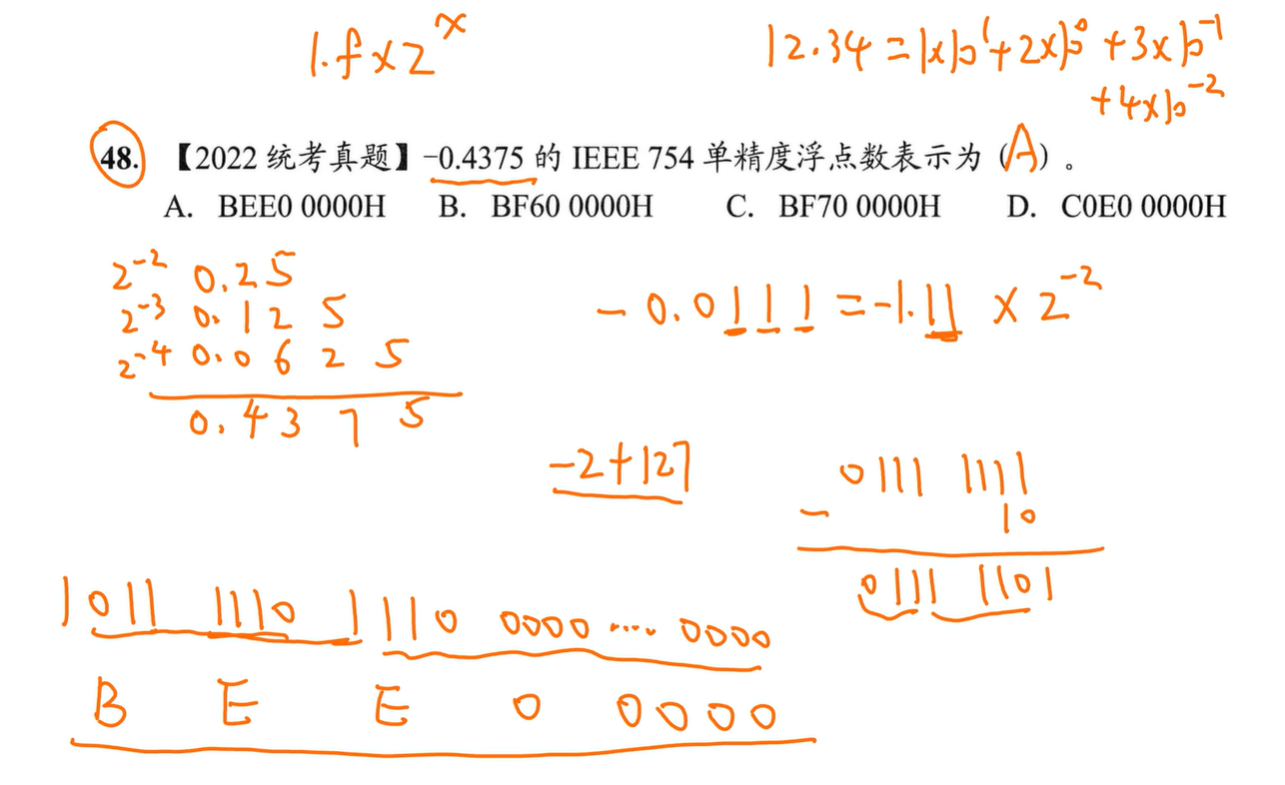 1.f×2^x
12.34=1×10^1+2×10^0+3×10^-1
+4×10^-2
48. 【2022 统考真题】-0.4375 的 IEEE 754 单精度浮点数表示为（A）。
A. BEE0 0000H B. BF60 0000H C. BF70 0000H D. C0E0 0000H
2^-2 0.25
2^-3 0.125
2^-4 0.0625
0.4375
-0.0111=-1.11×2^-2
-2+127
0111 1111
- 10
0111 1101
1011 1110 1110 0000 .... 0000
B E E 0 0000